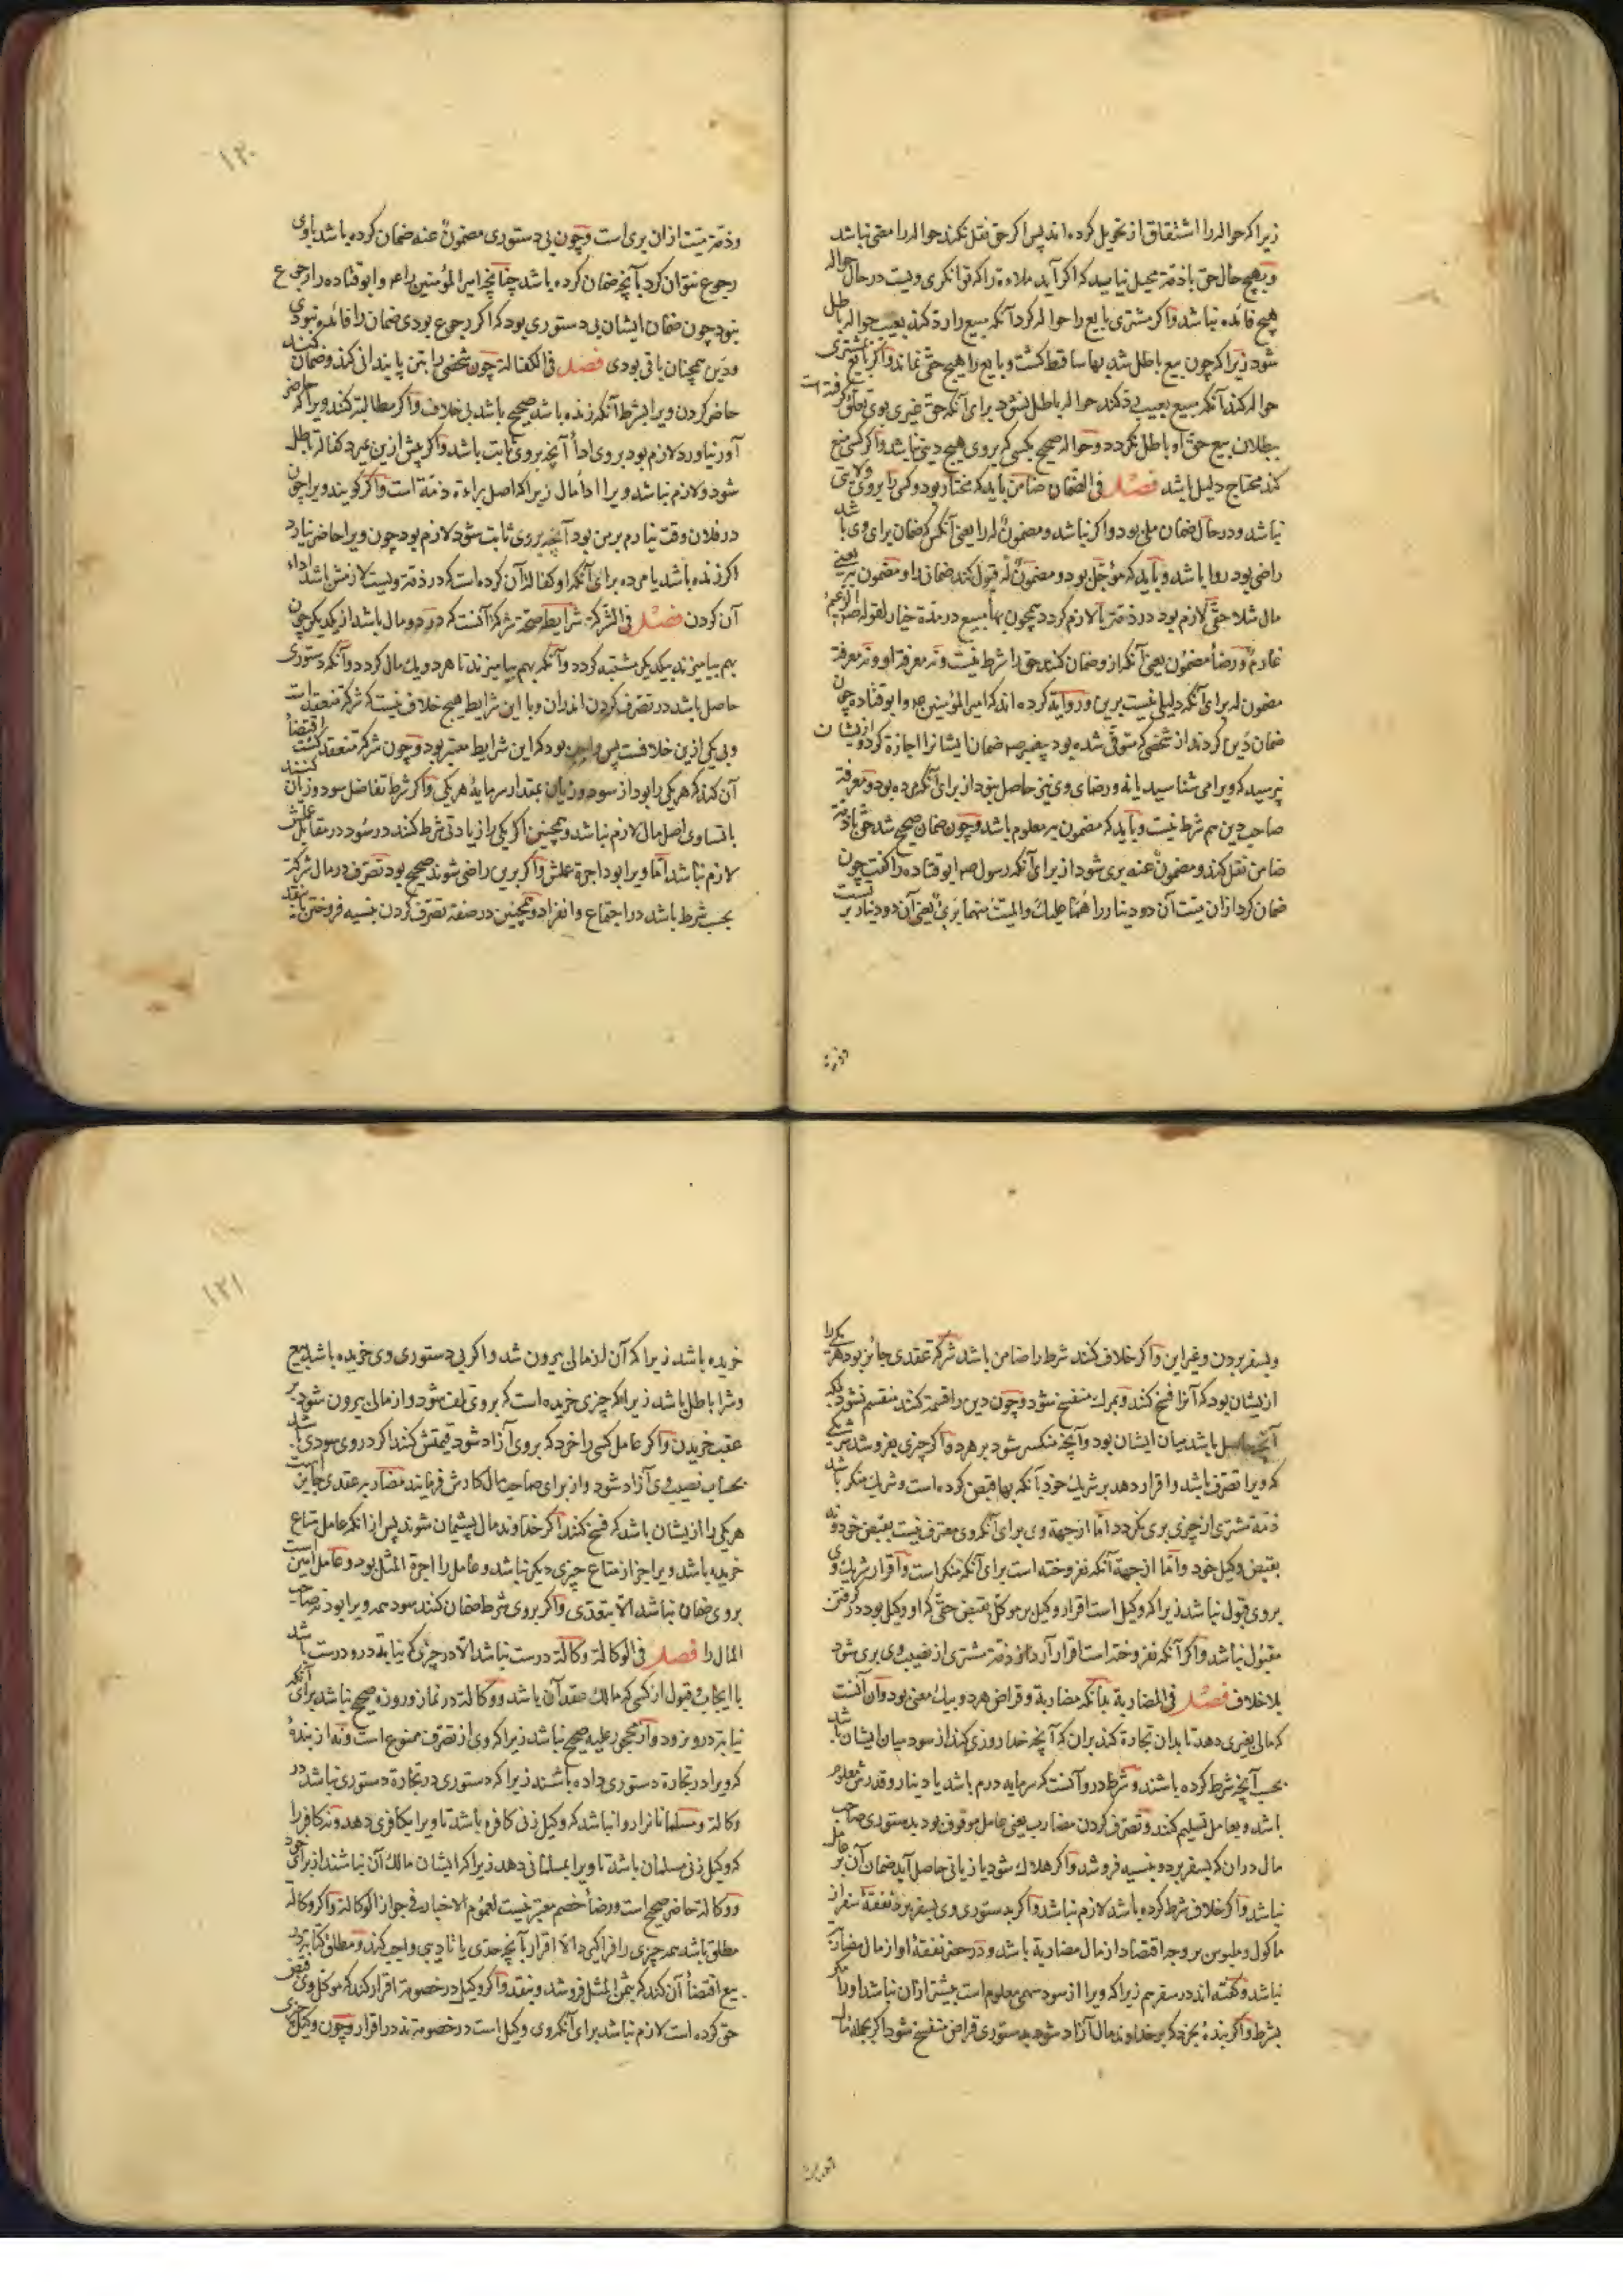 زیرا که حواله را اشتقاق از تحویل کرده‌اند پس اگر حق نقل نکند حواله را معنی نباشد
و بهیچ حال حق با ذمه محیل نیاید که اگر آید ملاءة را که توانگری ویست در حال حواله
هیچ فائده نباشد و اگر مشتری بایع را حواله کرد آنگه مبیع را رد کند بعیب حواله باطل
شود زیرا که چون بیع باطل شد بها ساقط گشت و بایع را هیچ حقی نماند و اگر بایع بر مشتری
حواله کند آنگه مبیع بعیب رد کند حواله باطل نشود برای آنکه حق غیری بوی تعلق گرفته است
ببطلان بیع حق او باطل نگردد و حواله صحیح بکسی که بروی هیچ دینی نباشد و اگر کسی منع
کند محتاج دلیل باشد فصل فی الضمان ضامن باید که مختار بود و کسی را بروی ولایتی
نباشد و در حال ضمان ملی بود و اگر نباشد و مضمون له را یعنی آنکس که ضمان برای وی باشد
راضی بود روا باشد و باید که مؤجل بود و مضمون له قبول کند ضمان او را و مضمون به یعنی
مال مثلا حقی لازم بود در ذمه یا لازم گردد همچون بها مبیع در مدة خیار لقوله ص الزعیم
غارم و رضأ مضمون یعنی آنکه از و ضمان کند حق را شرط نیست و نه معرفة او و نه معرفة
مضمون له برای آنکه دلیلی نیست برین و روایة کرده‌اند که امیر المؤمنین ع و ابو قتاده چون
ضمان دین کردند از شخصی که متوفی شده بود پیغمبر ص ضمان ایشانرا اجازة کرد و از یشان
نپرسید که ویرا می شناسید یا نه و رضای وی نیز حاصل نبود از برای آنکه مرده بود و معرفة
صاحب دین هم شرط نیست و باید که مضمون به معلوم باشد و چون ضمان صحیح شد حق با ذمه
ضامن نقل کند و مضمون عنه بری شود از برای آنکه رسول ص ابو قتاده را گفت چون
ضمان کرد از ان میت آن دو دینار را هما علیك والمیت منهما بریٔ یعنی آن دو دینار بر تست
وذمه
وذمه میت از ان بری است و چون بی دستوری مضمون عنه ضمان کرده باشد باوی
رجوع نتوان کرد بآنچه ضمان کرده باشد چنانچه امیر المؤمنین را ع و ابو قتاده را رجوع
نبود چون ضمان ایشان بی دستوری بود که اگر رجوع بودی ضمان را فائده نبودی
و دین همچنان باقی بودی فصل فی الکفالة چون شخصی را بتن پایندانی کند و ضمان کنند
حاضر کردن ویرا بشرط آنکه زنده باشد صحیح باشد بی خلاف و اگر مطالبة کنند ویرا که حاضر
آور نیاورد لازم بود بروی ادأ آنچه بروی ثابت باشد و اگر پیش ازین بمیرد کفالة باطل
شود و لازم نباشد ویرا ادأ مال زیرا که اصل براءة ذمة است و اگر گویند ویرا چون
در فلان وقت نیارم بر من بود آنچه بروی ثابت شود لازم بود چون ویرا حاضر نیارد
اگر زنده باشد یا مرده برای آنکه او کفالة آن کرده است که در ذمه ویست لازمش باشد اداء
آن کردن فصل فی الشرکة شرایط صحة شرکة آنست که در دو مال باشد از یکدیگر چون
بهم بیامیزند بیکدیگر مشتبه گردد و آنکه بهم بیامیزند تا هر دو یك مال گردد و آنکه دستوری
حاصل باشد در تصرف کردن اندران و با این شرایط هیچ خلاف نیست که شرکة منعقد است
و بی یکی ازین خلافست پس واجب بود که این شرایط معتبر بود و چون شرکة منعقد گشت اقتضأ
آن کند که هریکی را بود از سود و زیان بمقدار سرمایة هریکی و اگر شرط تفاضل سود و زیان کنند
با تساوی اصل مال لازم نباشد و همچنین اگر یکی را زیادتی شرط کنند در سود در مقابل عملش
لازم نباشد اما ویرا بود اجرة عملش و اگر برین راضی شوند صحیح بود تصرف در مال شرکة
بحسب شرط باشد در اجتماع و انفراد و همچنین در صفة تصرف کردن بنسیه فروختن یا بنقد
و بسفر بردن و غیر این و اگر خلاف کنند شرط را ضامن باشد شرکة عقدی جائز بود هر یکی را
ازیشان بود که آنرا فسخ کنند و بمرك منفسخ شود و چون دین را قسمة کنند منقسم نشود بلکه
آنچه حاصل باشد میان ایشان بود و آنچه منکسر شود بر هر دو و اگر چیزی بفروشد شریکی
که ویرا تصرف باشد و اقرار دهد بر شریك خود بآنکه بها قبض کرده است و شریك منکر باشد
ذمة مشتری از چیزی بری نگردد اما از جهة وی برای آنکه وی معترف نیست بقبض خود و نه
بقبض وکیل خود و اما از جهة آنکه نفروخته است برای آنکه منکر است و اقرار شریك وی
بروی قبول نباشد زیرا که وکیل است اقرار وکیل بر موکل بقبض حقی که او وکیل بود در گرفتن
مقبول نباشد و اگر آنکه نفروخته است اقرار آرد ذمة مشتری از نصیب وی بری شود
بلا خلاف فصل فی المضاربة بدانکه مضاربة و قراض هر دو بیك معنی بود و آن آنست
که مالی بغیری دهد تا بدان تجارة کند بران که آنچه خدا روزی کند از سود میان ایشان باشد
بحسب آنچه شرط کرده باشند و شرط درو آنست که سرمایه درم باشد یا دینار و قدرش معلوم
باشد و بعامل تسلیم کنند و تصرف کردن مضارب یعنی عامل موقوف بود بدستوری صاحب
مال در ان که بسفر برد و بنسیه فروشد و اگر هلاك شود یا زیانی حاصل آید ضمان آن بر عامل
نباشد و اگر خلاف شرط کرده باشد لازم نباشد و اگر بدستوری وی بسفر برد نفقة سفر از
ماکول و ملبوس بر وجه اقتصاد از مال مضاربة باشد و در حضر نفقة او از مال مضاربة
نباشد و گفته‌اند در سفر هم زیرا که ویرا از سود سهمی معلوم است بیشتر ازان نباشد او را مگر
بشرط و اگر بندۀ بخرد که بر خداوند مال آزاد شود بدستوری قراض منفسخ شود اگر بجمله مال
خریده باشد زیرا که آن از مالی بیرون شد و اگر بی دستوری وی خریده باشد بیع
و شرا باطل باشد زیرا که چیزی خریده است که بروی تلف شود و از مالی بیرون شود بر
عقب خریدن و اگر عامل کسی را خرد که بروی آزاد شود قیمتش کنند اگر در وی سودی باشد
بحساب نصیب وی آزاد شود و از برای صاحب مال کارش فرمایند مضاربه عقدی جایز است
هریکی را ازیشان باشد که فسخ کنند اگر خداوند مال پشیمان شوند پس از انکه عامل متاع
خریده باشد ویرا جز از متاع چیزی دیگر نباشد و عامل را اجرة المثل بود و عامل امین است
بروی ضمان نباشد الا بتعدی و اگر بروی شرط ضمان کنند سود همه ویرا بود نه صاحب
المال را فصل فی الوکالة وکالة درست نباشد الا در چیزی که نیابة درو درست باشد
با ایجاب و قبول از کسی که مالك عقد آن باشد و وکالة در نماز و روزه صحیح نباشد برای آنکه
نیابة درو نرود و از محجور علیه صحیح نباشد زیرا که وی از تصرف ممنوع است و نه از بندۀ
که ویرا در تجارة دستوری داده باشند زیرا که دستوری در تجارة دستوری نباشد در
وکالة و مسلمانانرا روا نباشد که وکیل زنی کافره باشد تا ویرا بکافری دهد و نه کافر را
که وکیل زنی مسلمان باشد تا ویرا بمسلمانی دهد زیرا که ایشان مالك آن نباشند از برای خود
و وکالة حاضر صحیح است و رضأ خصم معتبر نیست لعموم الاخبار فی جواز الوکالة و اگر وکالة
مطلق باشد همه چیزی را فراگیرد الا اقرار بآنچه حدی یا تأدیبی واجب کند و مطلق وکالة در
بیع اقتضأ آن کند که بثمن المثل فروشد و بنقد و اگر وکیل در خصومة اقرار کند که موکل وی قبض
حق کرده است لازم نباشد برای آنکه وی وکیل است در خصومة نه در اقرار و چون وکیل چیزی